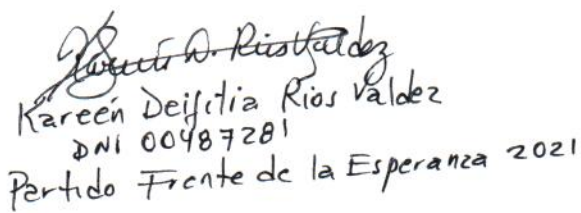 Kareen D. Rios Valdez
Kareén Deifilia Rios Valdez
DNI 00487281
Partido Frente de la Esperanza 2021